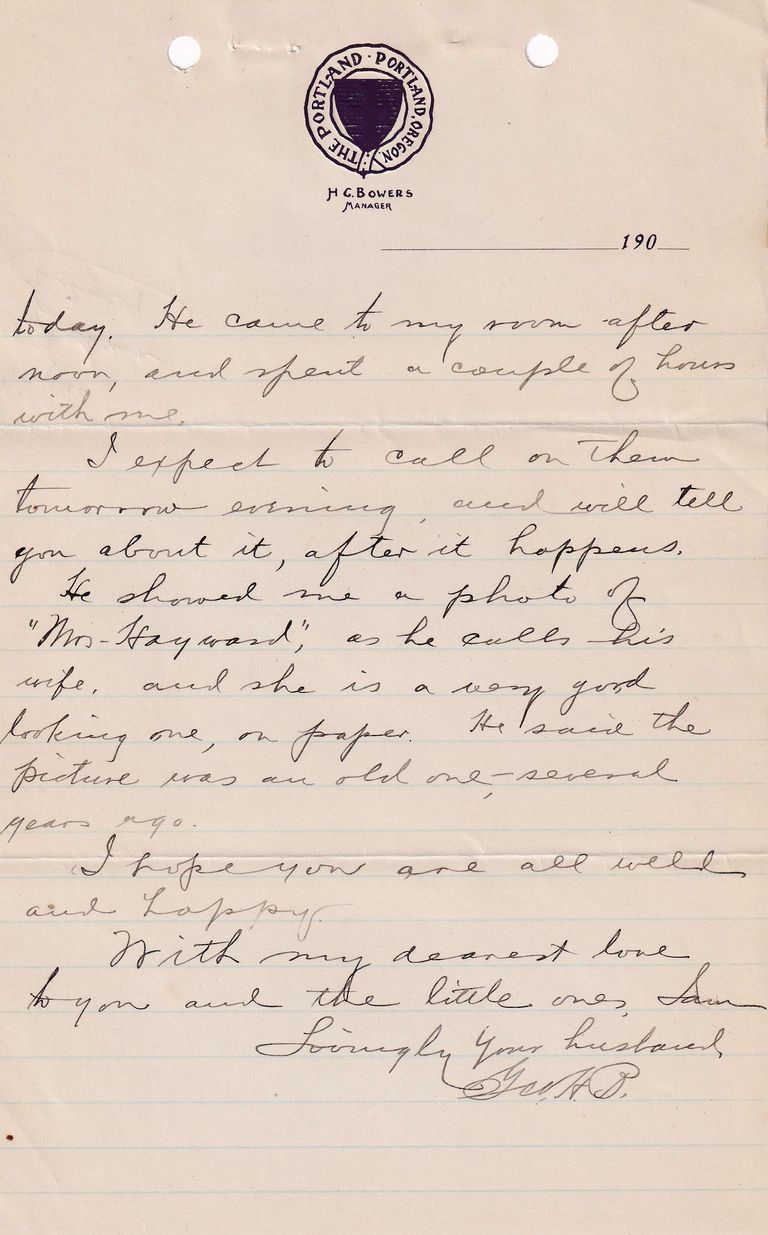 THE PORTLAND · PORTLAND, OREGON.
H. C. BOWERS
MANAGER
190
today. He came to my room after
noon, and spent a couple of hours
with me.
I expect to call on Them
tomorrow evening, and will tell
you about it, after it happens.
He showed me a photo of
"Mrs-Hayward", as he calls his
wife. and she is a very good
looking one, on paper. He said the
picture was an old one,-several
years ago.
I hope you are all well
and happy.
With my dearest love
to you and the little ones, I am
Lovingly Your husband,
Geo. H. B.